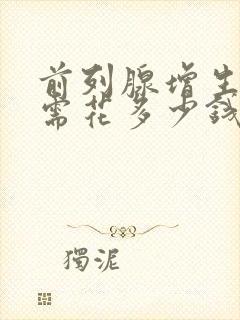 前列腺增生
需花多少钱
獨泥